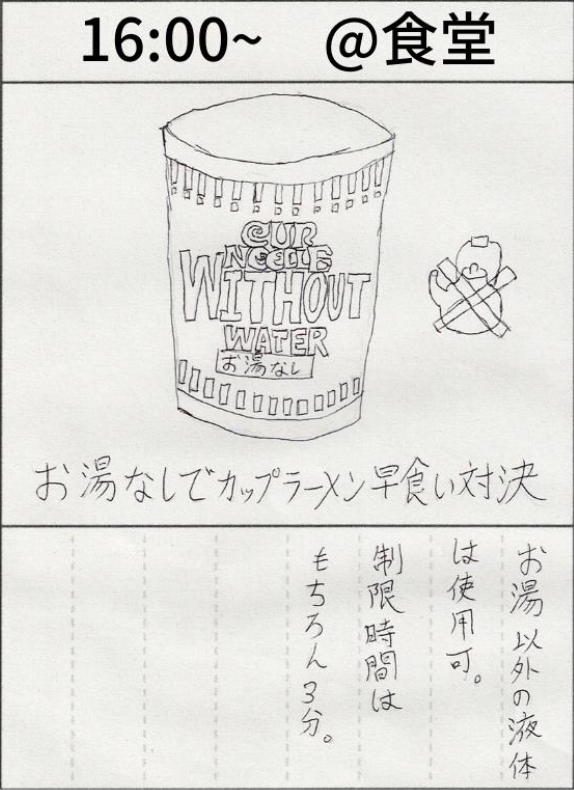 16:00~ @食堂
CUP
NOODLE
WITHOUT
WATER
お湯なし
お湯なしでカップラーメン早食い対決
お湯以外の液体
は使用可。
制限時間は
もちろん3分。